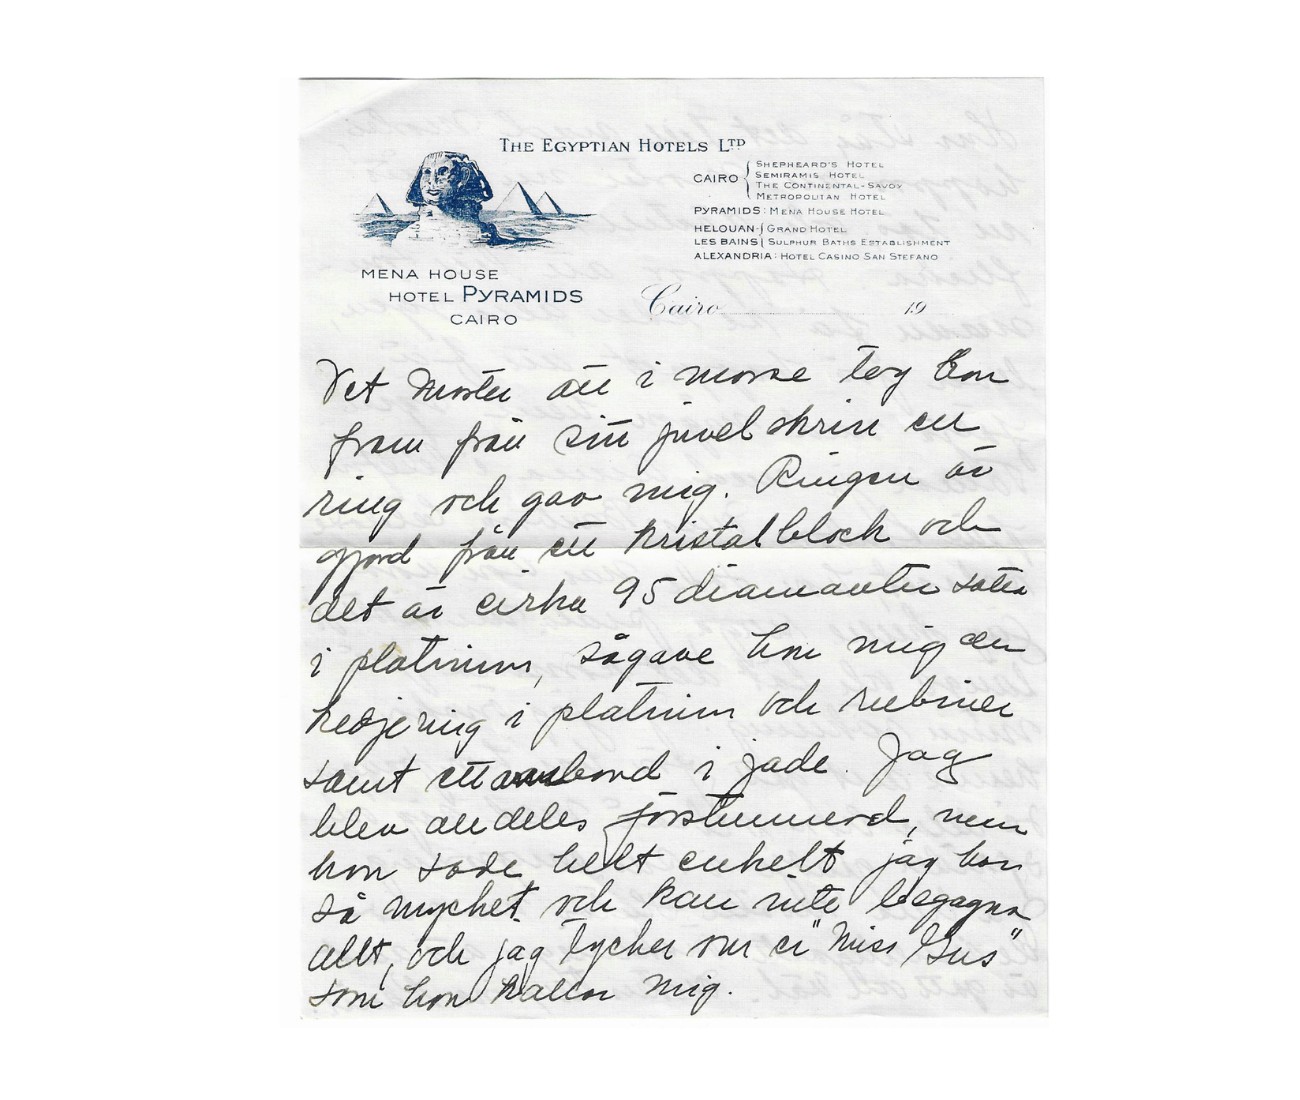 THE EGYPTIAN HOTELS LTD
CAIRO { SHEPHEARD'S HOTEL
SEMIRAMIS HOTEL
THE CONTINENTAL-SAVOY
METROPOLITAN HOTEL
PYRAMIDS: MENA HOUSE HOTEL
HELOUAN { GRAND HOTEL
LES BAINS { SULPHUR BATHS ESTABLISHMENT
ALEXANDRIA: HOTEL CASINO SAN STEFANO
MENA HOUSE
HOTEL PYRAMIDS
CAIRO
Cairo 19
Vet Moster att i morse tog hon
fram från sitt juvelskrin en
ring och gav mig. Ringen är
gjord från ett kristalblock och
det är cirka 95 diamanter satta
i platinum, så gave hon mig en
kedjering i platinum och rubiner
samt ett armband i jade. Jag
blev alldeles förstummad, men
hon sade helt enkelt jag har
så mycket och kan inte begagna
allt, och jag tycker om er "Miss Gus"
som hon kallar mig.